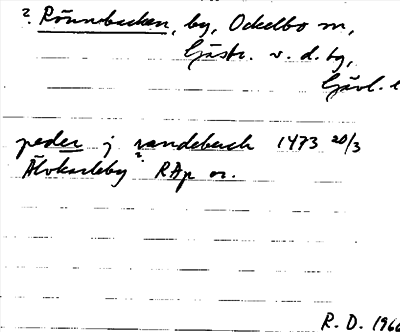 ? Rönnbacken, by, Ockelbo sn,
Gästr. v. d. by,
Gävl. l
peder j randebech 1473 20/3
?
Älvkarleby RAp or.
R. D. 1966